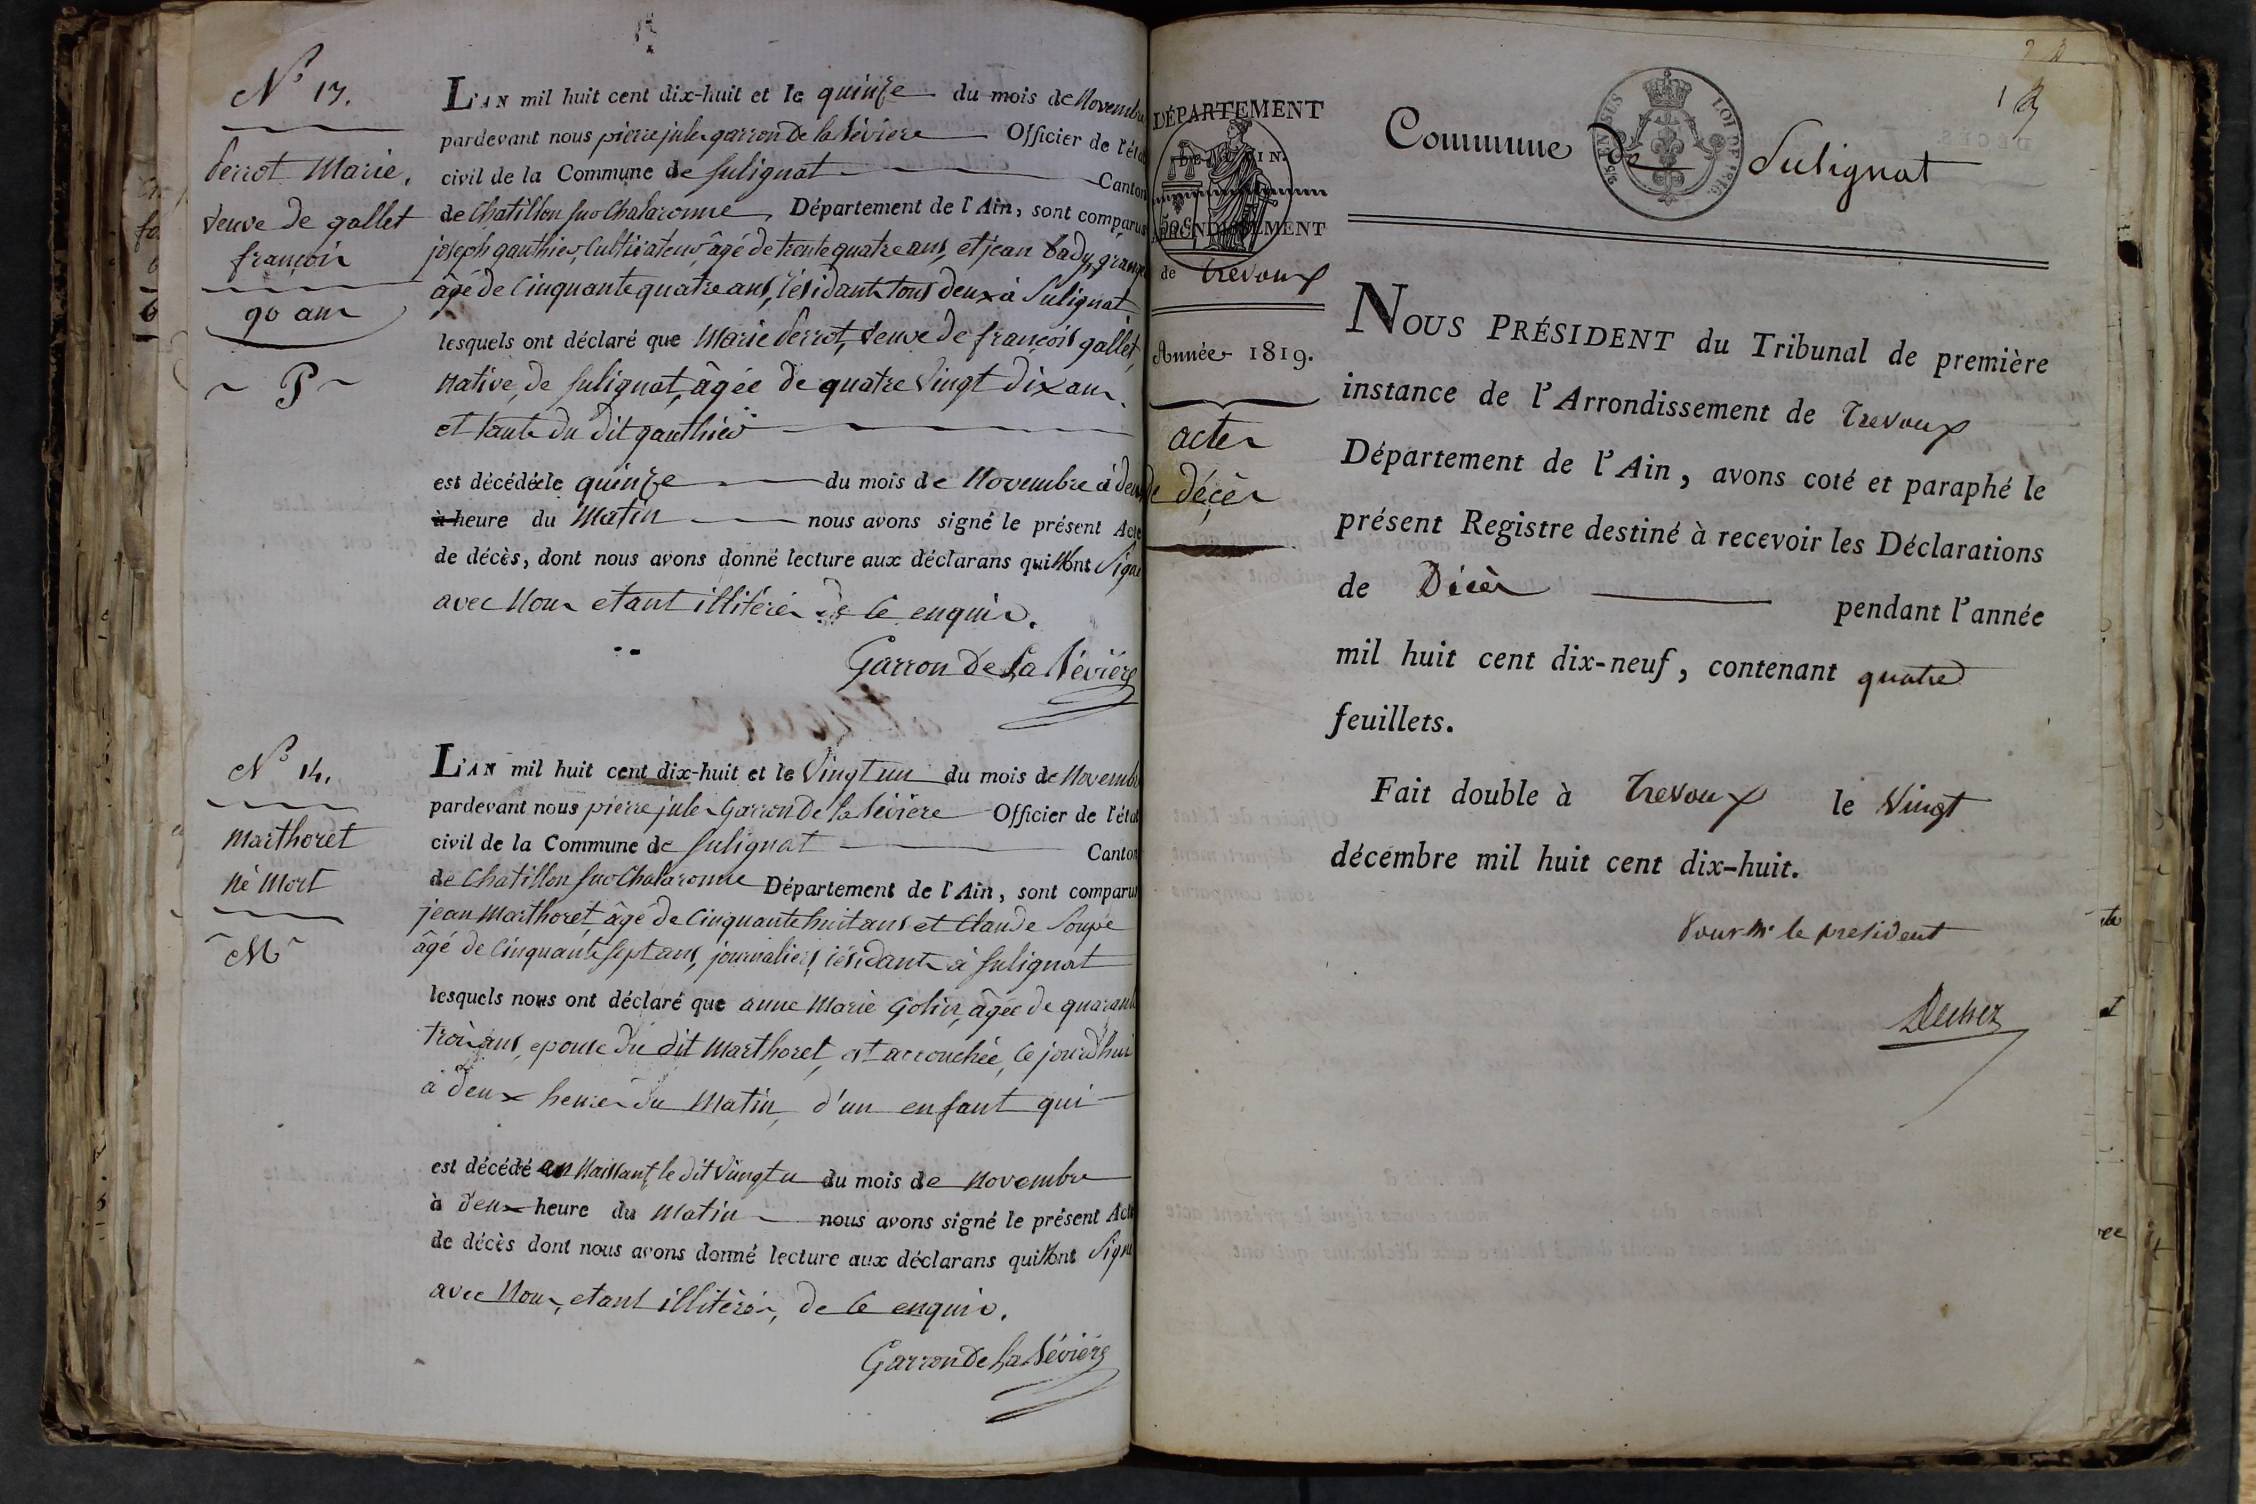 N° 13.
Perrot Marie,
veuve de gallet
françois
90 ans
P
L'AN mil huit cent dix-huit et le quinze du mois de Novembre
pardevant nous pierre jules garron De la Bévière Officier de l'état
civil de la Commune de Sulignat Canton
de Chatillon sur Chalaronne, Département de l'Ain, sont comparus
joseph gauthier, Cultivateur, âgé de trente quatre ans, et jean bady, grange
âgé de Cinquante quatre ans, résidants tous deux à Sulignat
lesquels ont déclaré que Marie Perrot, veuve de françois gallet,
Native de Sulignat, âgée de quatre Vingt dix ans.
et tante du dit gauthier
est décédée le quinze du mois de Novembre à deux
à heure du Matin nous avons signé le présent Acte
de décès, dont nous avons donné lecture aux déclarans qui Nont Signé
avec Nous etant illitérés de ce enquis.
Garron De La Bévière
N° 14.
Marthoret
né Mort
M
L'AN mil huit cent dix-huit et le Vingt un du mois de Novembre
pardevant nous pierre jules Garron De la Bévière Officier de l'état
civil de la Commune de Sulignat Canton
de Chatillon sur Chalaronne Département de l'Ain, sont comparus
jean Marthoret âgé de Cinquante huit ans et Claude Soupe
âgé de Cinquante Sept ans, journaliers, résidants à Sulignat
lesquels nous ont déclaré que anne Marie Golin, âgée de quarante
trois ans, epouse du dit Marthoret, est accouchée, ce jourd'hui
à deux heures du Matin, d'un enfant qui
est décédé en Naissant, le dit Vingt u du mois de Novembre
à deux heure du Matin nous avons signé le présent Acte
de décès dont nous avons donné lecture aux déclarans qui Nont Signé
avec Nous, etant illitérés, de ce enquis.
Garron De La Bévière
DÉPARTEMENT
DE L'AIN.
50c
ARRONDISSEMENT
de Trevoux
Année 1819.
actes
de décès
1
Commune de Sulignat
LOI DE 1816.
NOUS PRÉSIDENT du Tribunal de première
instance de l'Arrondissement de Trevoux
Département de l'Ain, avons coté et paraphé le
présent Registre destiné à recevoir les Déclarations
de Décès pendant l'année
mil huit cent dix-neuf, contenant quatre
feuillets.
Fait double à Trevoux le Vingt
décembre mil huit cent dix-huit.
Pour Mr le president